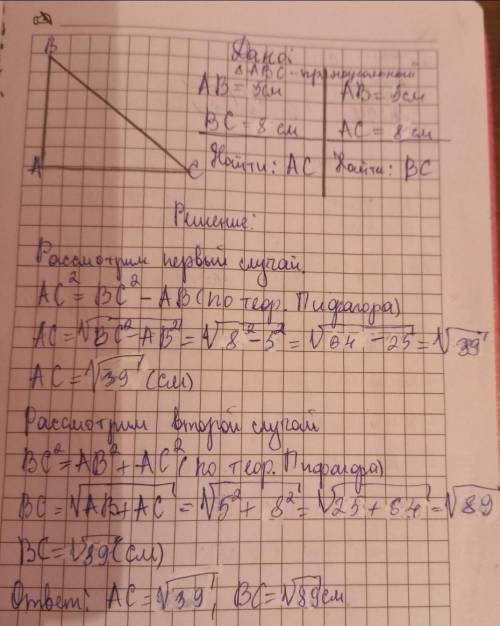 Дано:
B
Δ ABC - прямоугольный
AB = 5см
AB = 5см
BC = 8 см
AC = 8 см
A
C
Найти: AC
Найти: BC
Решение:
Рассмотрим первый случай
AC² = BC² - AB (по теор. Пифагора)
AC = √BC² - AB² = √8² - 5² = √64 - 25 = √39
AC = √39 (см)
Рассмотрим второй случай
BC² = AB² + AC² (по теор. Пифагора)
BC = √AB + AC = √5² + 8² = √25 + 64 = √89
BC = √89 (см)
Ответ: AC = √39, BC = √89 см